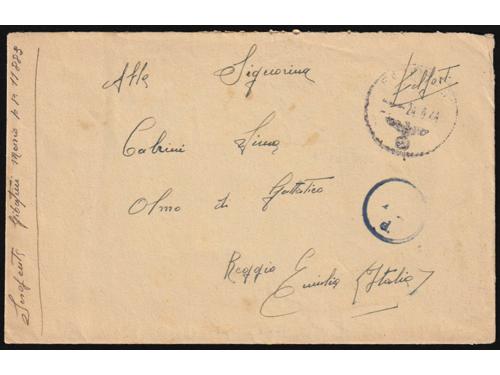 Alla Signorina
Cabrini Lina
Olmo di Gattatico
Reggio
Emilia (Italia)
Feldpost
24.6.44
11883